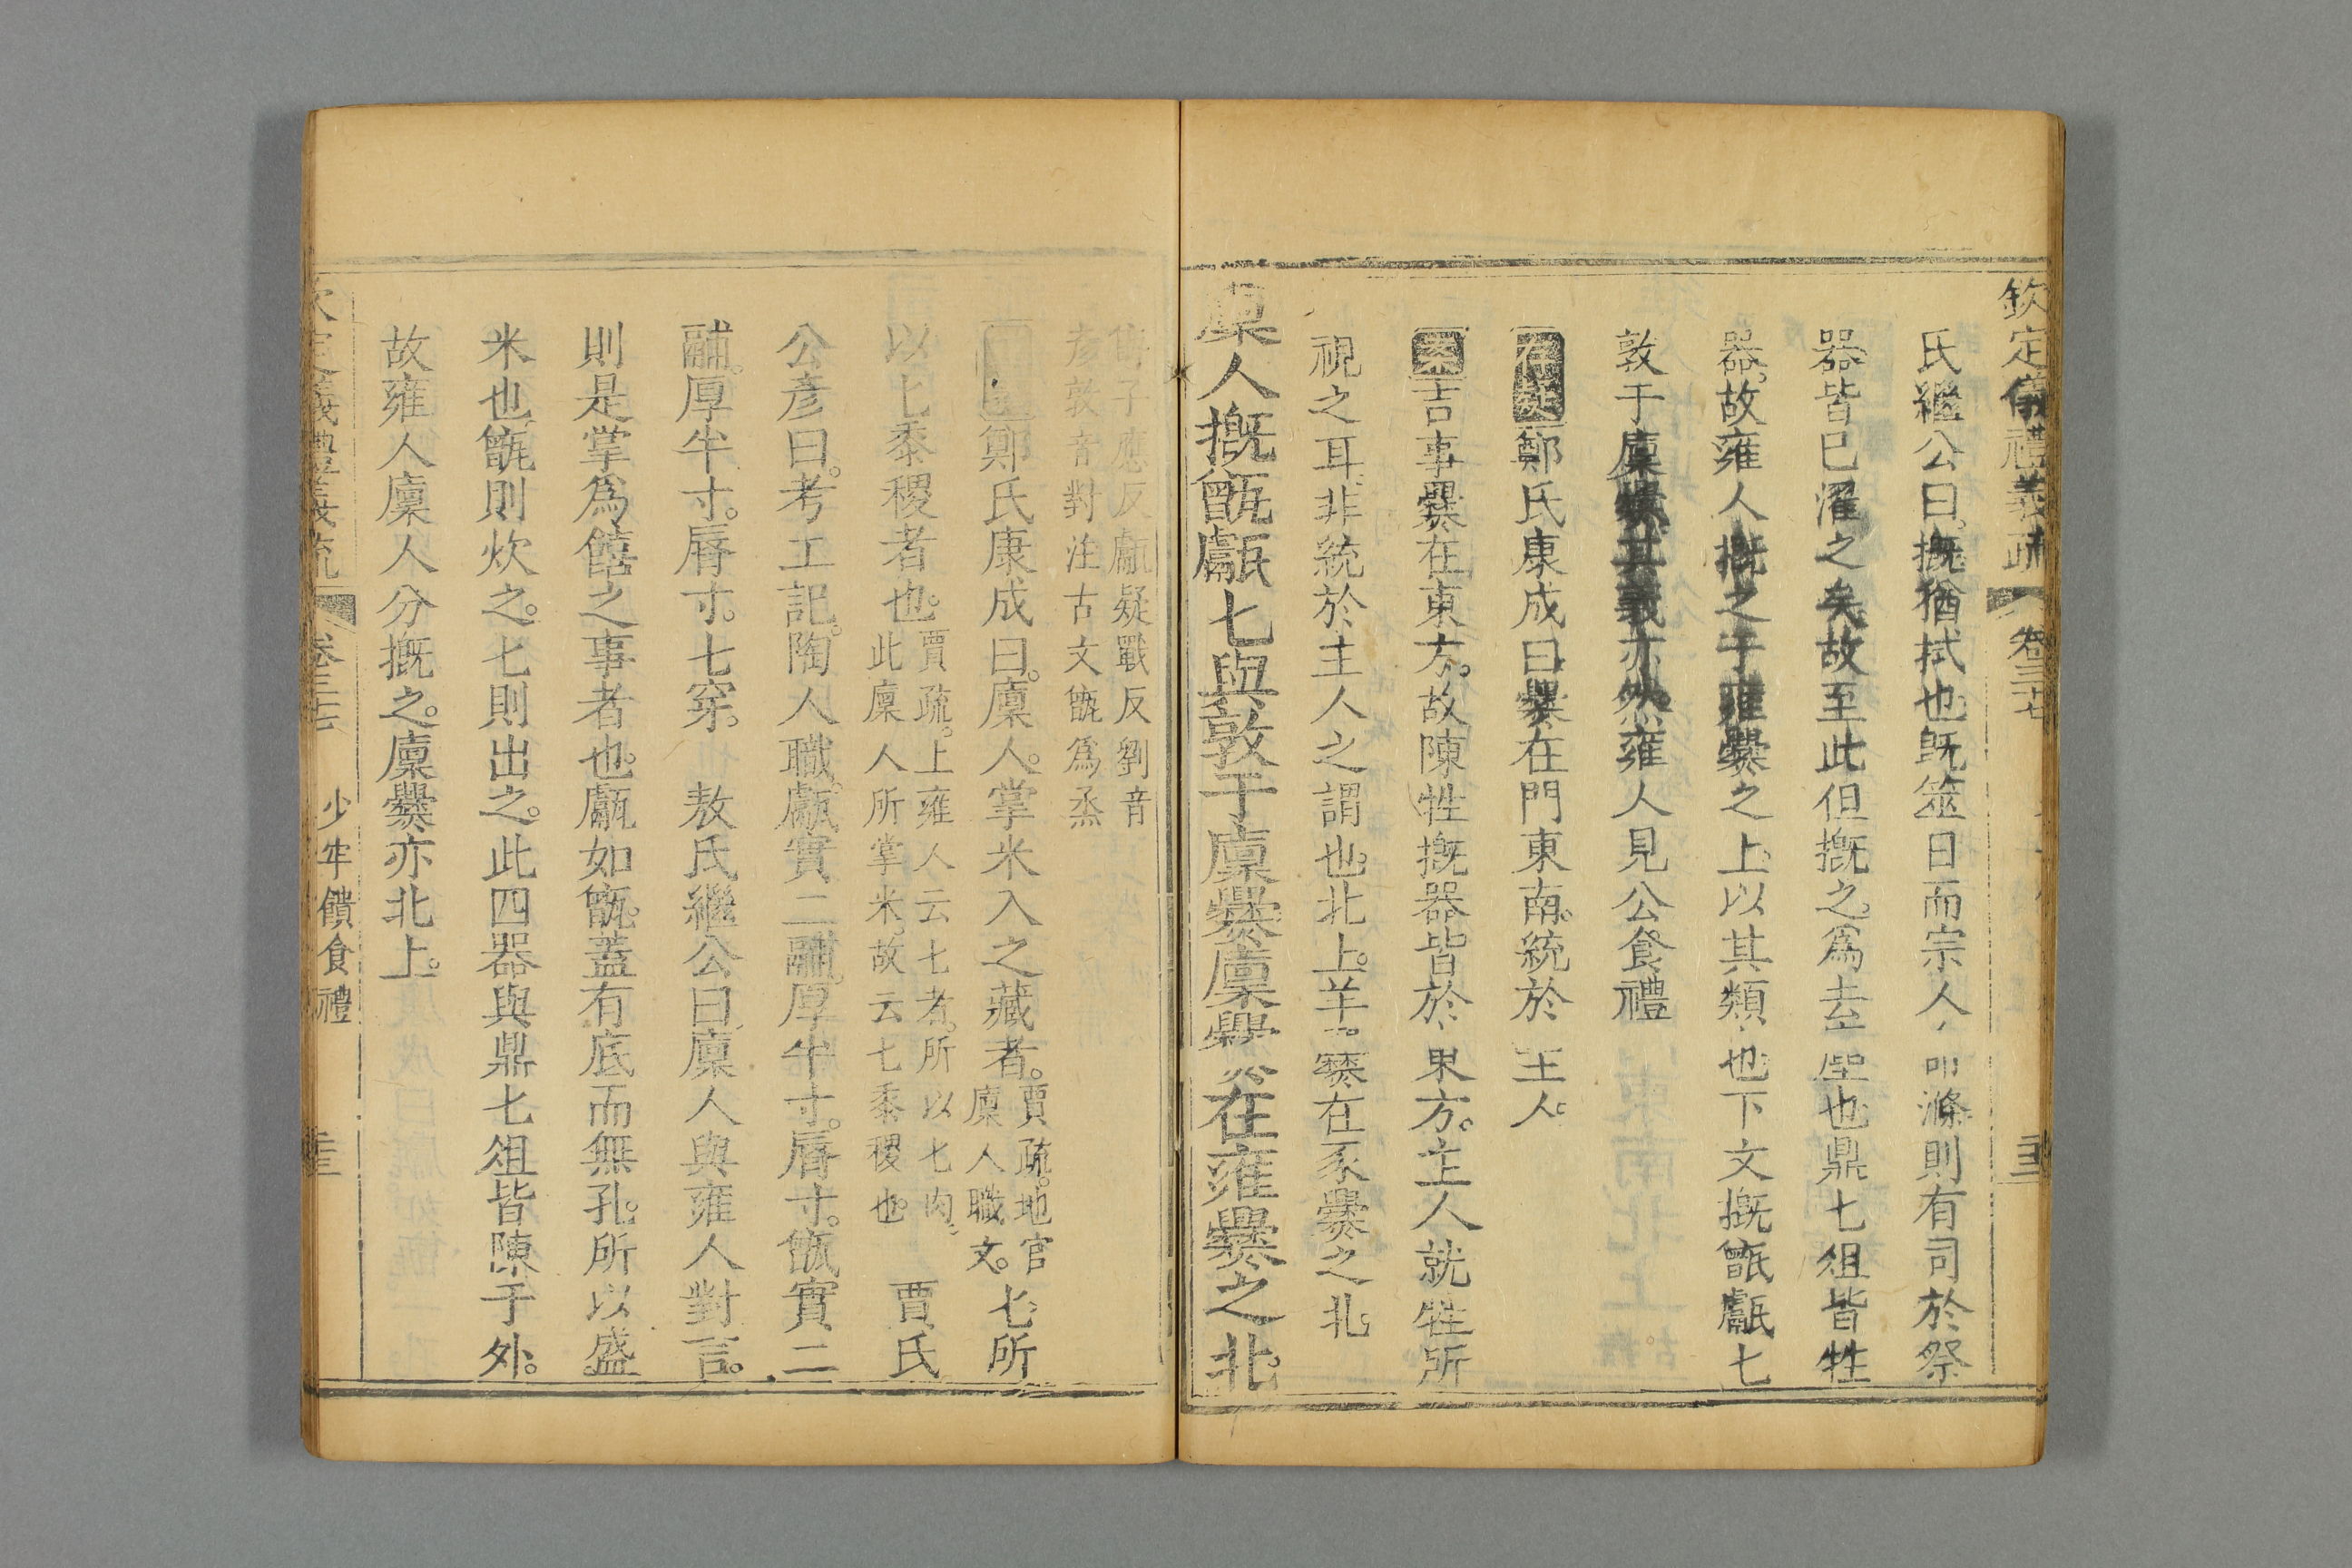 欽定儀禮義疏 卷三十七
氏繼公曰。摡猶拭也。旣筮日而宗人命滌。則有司於祭
器皆已濯之矣。故至此但摡之。爲去塵也。鼎匕俎皆牲
器。故雍人摡之于雍爨之上。以其類也。下文摡甑甗匕
敦于廩爨。其義亦然。雍人見公食禮
存疑鄭氏康成曰。爨在門東南。統於主人。
案吉事爨在東方。故陳牲摡器皆於東方。主人就牲所
視之耳。非統於主人之謂也。北上。羊爨在豕爨之北
廩人摡甑甗匕與敦于廩爨廩爨在雍爨之北
甑子應反甗疑戰反劉音
彥敦音對注古文甑爲烝
正義鄭氏康成曰。廩人。掌米入之藏者。賈疏。地官廩人職文。匕所
以匕黍稷者也。賈疏。上雍人云匕者。所以匕肉。此廩人所掌米。故云匕黍稷也。 賈氏
公彥曰。考工記。陶人職。甗實二鬴。厚半寸。脣寸。甑實二
鬴。厚半寸。脣寸。七穿。 敖氏繼公曰。廩人與雍人對言。
則是掌爲饎之事者也。甗如甑。蓋有底而無孔。所以盛
米也。甑則炊之。匕則出之。此四器與鼎匕俎皆陳于外。
故雍人廩人分摡之。廩爨亦北上。
欽定儀禮義疏 卷三十七 少牢饋食禮